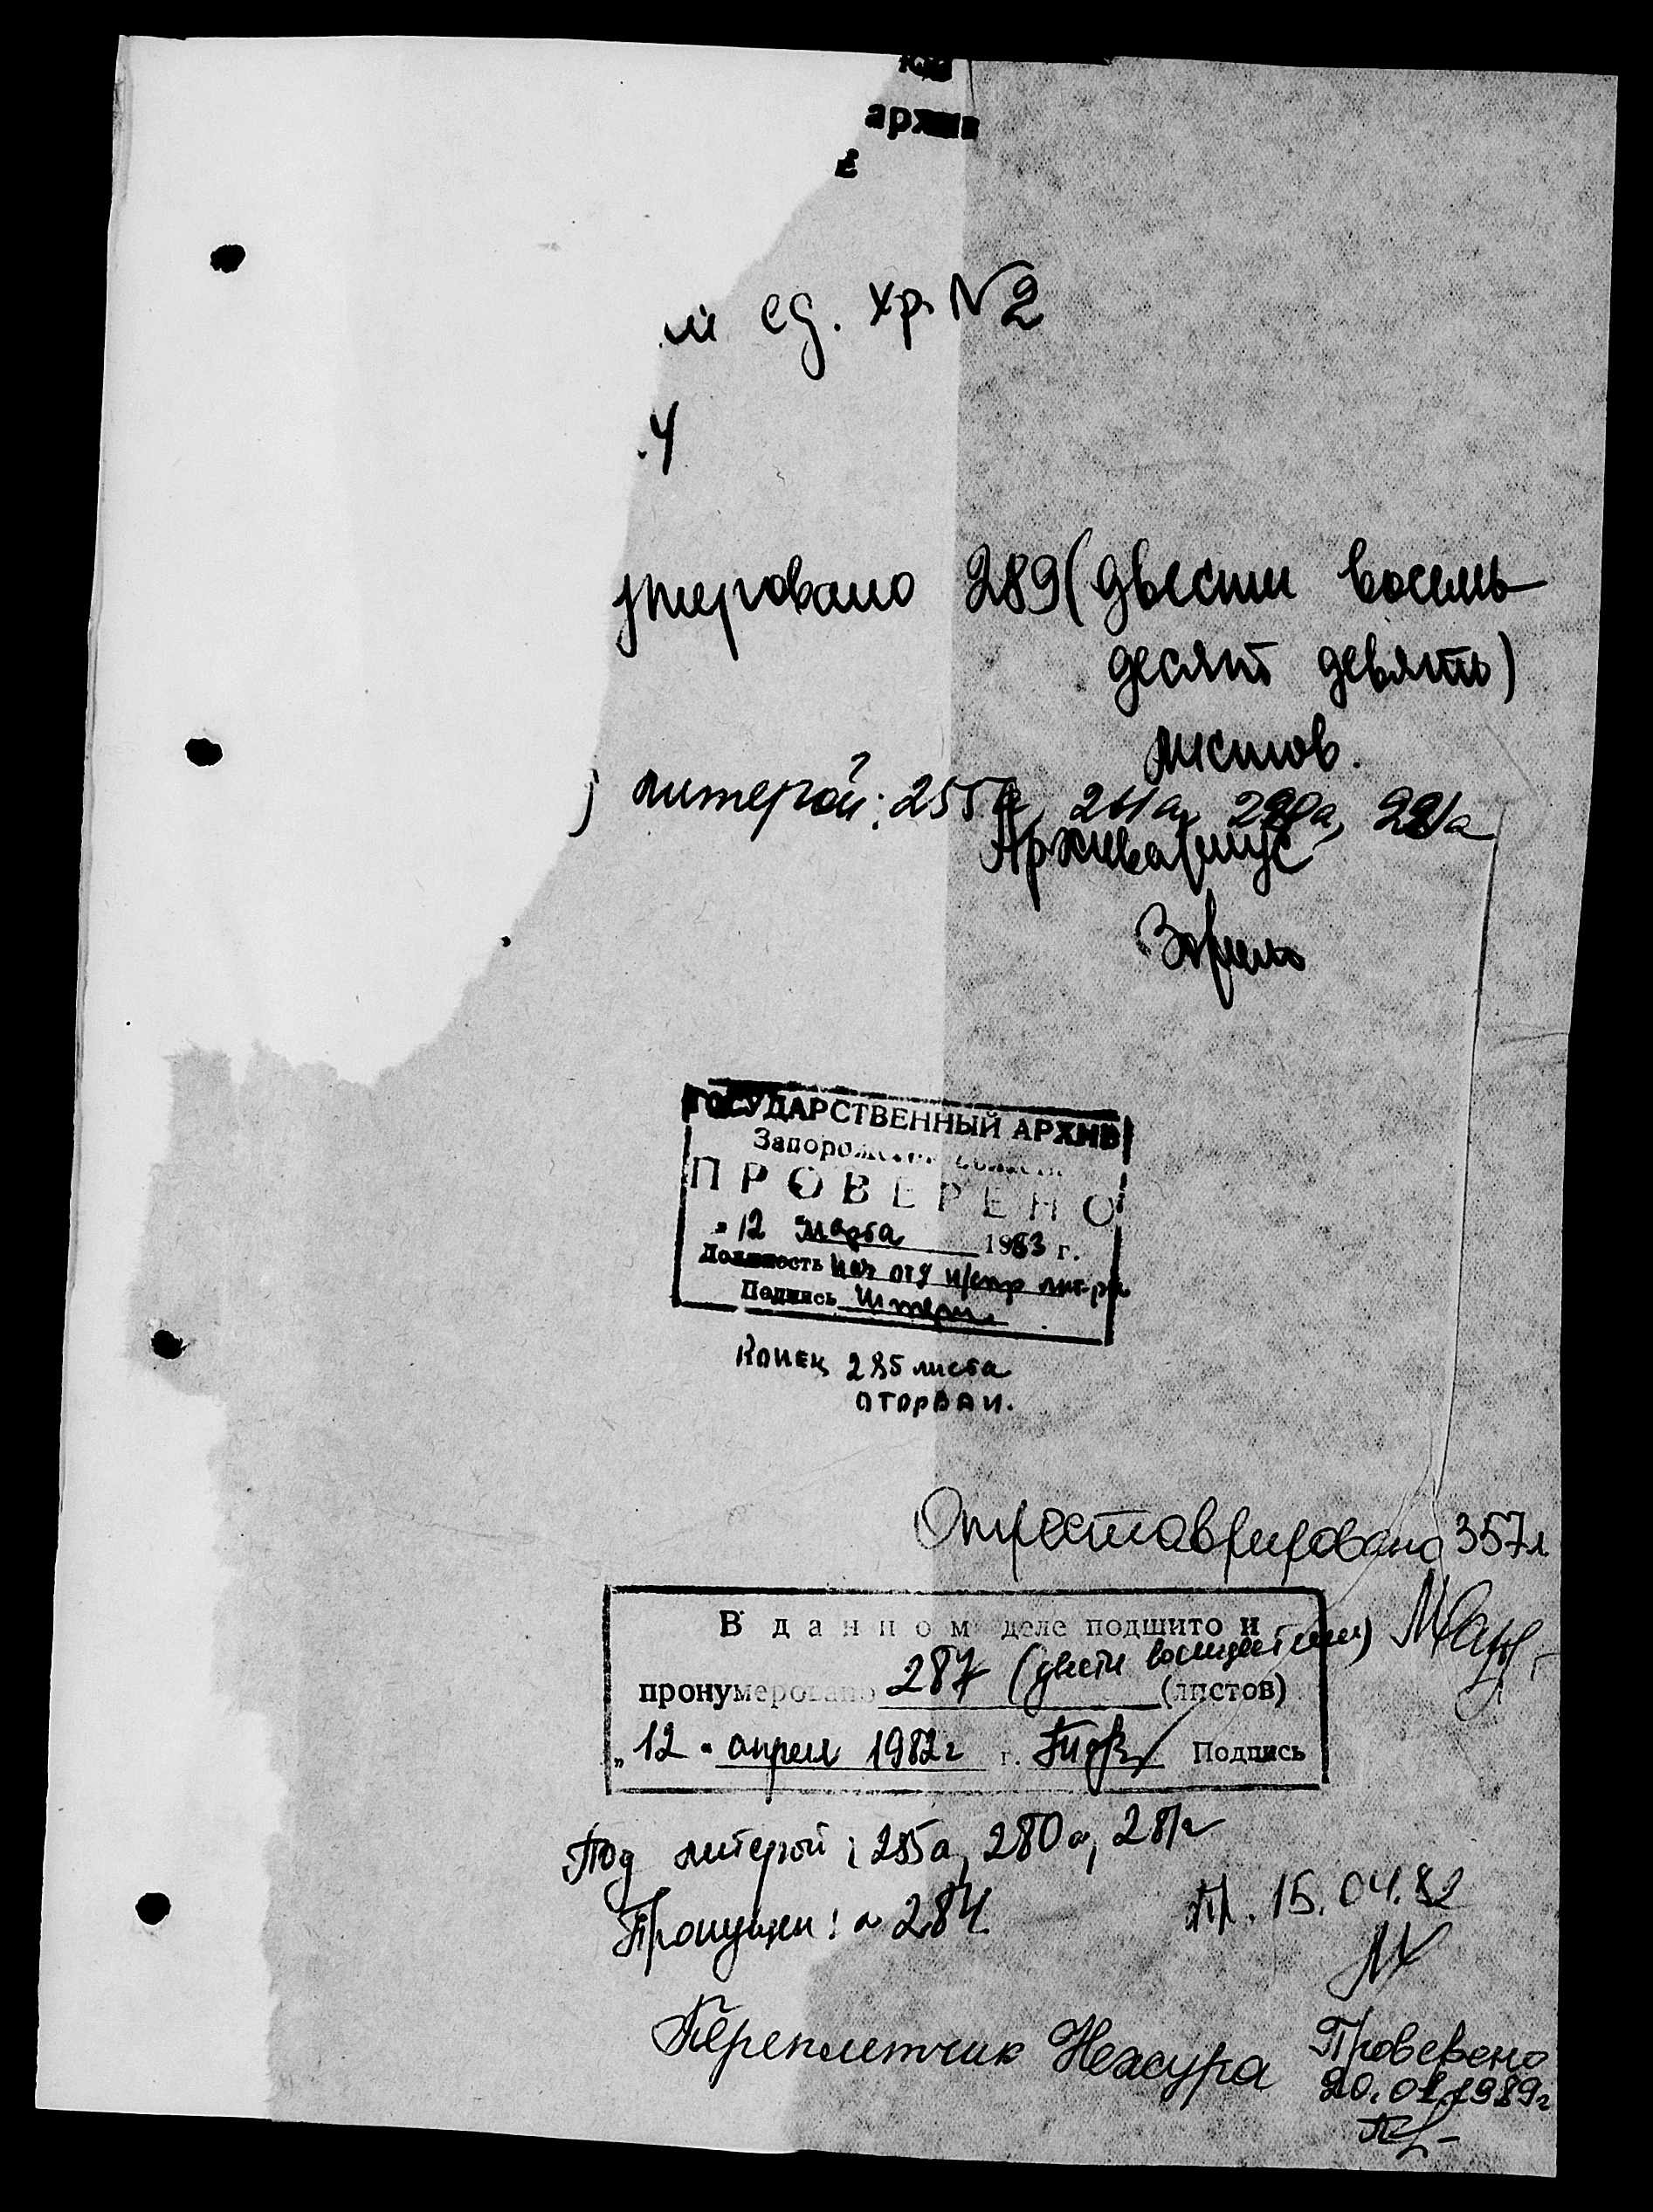 архив
ед. хр. N 2
.4
умеровано 289 (двести восемь
десят девять)
листов.
литерой: 255а, 261а, 280а, 281а
Архивариус
ГОСУДАРСТВЕННЫЙ АРХИВ
Запорожской области
ПРОВЕРЕНО
"12 марта 1983 г.
Должность нач отд
Подпись Штерн
Конец 285 листа
оторван.
Отреставрировано 357л
В данном деле подшито и
пронумеровано 287 (двести восемьдесят семь) (листов)
"12" апреля 1982г г. Подпись
Под литерой: 255а, 280а, 281а
Пропущен: 284.
15.04.82
Переплетчик Нехсура
Проверено
20.01.1989г